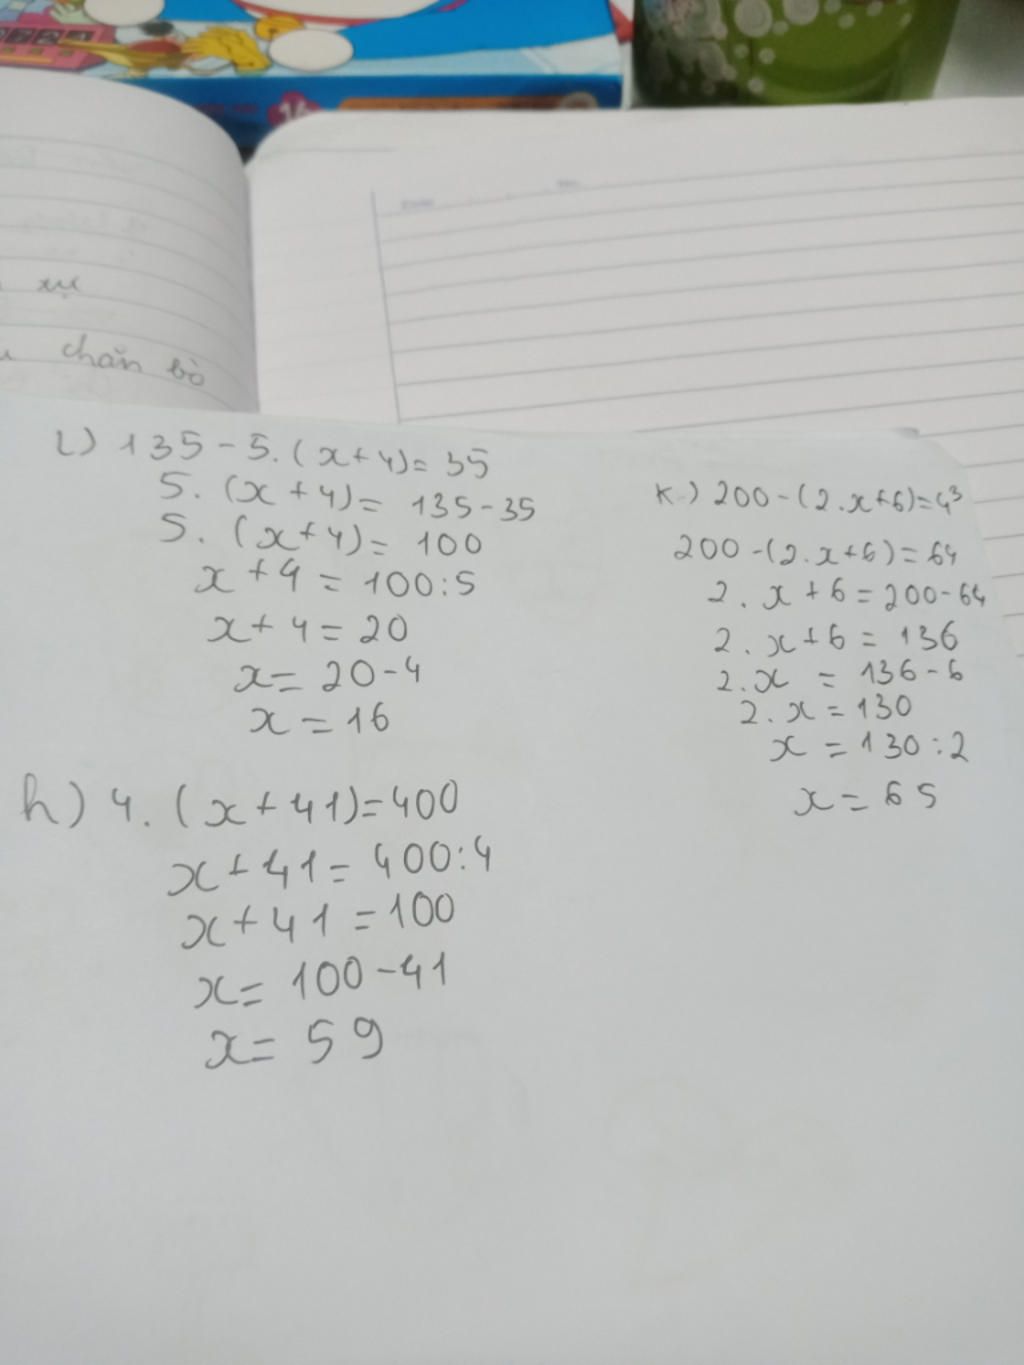 16
xư
chăn bò
i) 135 - 5. (x + 4) = 35
5. (x + 4) = 135 - 35
5. (x + 4) = 100
x + 4 = 100 : 5
x + 4 = 20
x = 20 - 4
x = 16
h) 4. (x + 41) = 400
x + 41 = 400 : 4
x + 41 = 100
x = 100 - 41
x = 59
K) 200 - (2. x + 6) = 4³
200 - (2. x + 6) = 64
2. x + 6 = 200 - 64
2. x + 6 = 136
2. x = 136 - 6
2. x = 130
x = 130 : 2
x = 65